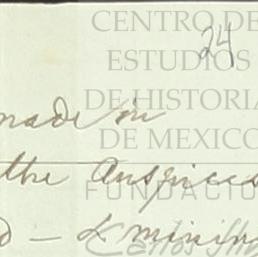 CENTRO DE
ESTUDIOS
DE HISTORIA
DE MEXICO
FUNDACIO
Carlos
24
made in
the Auspices